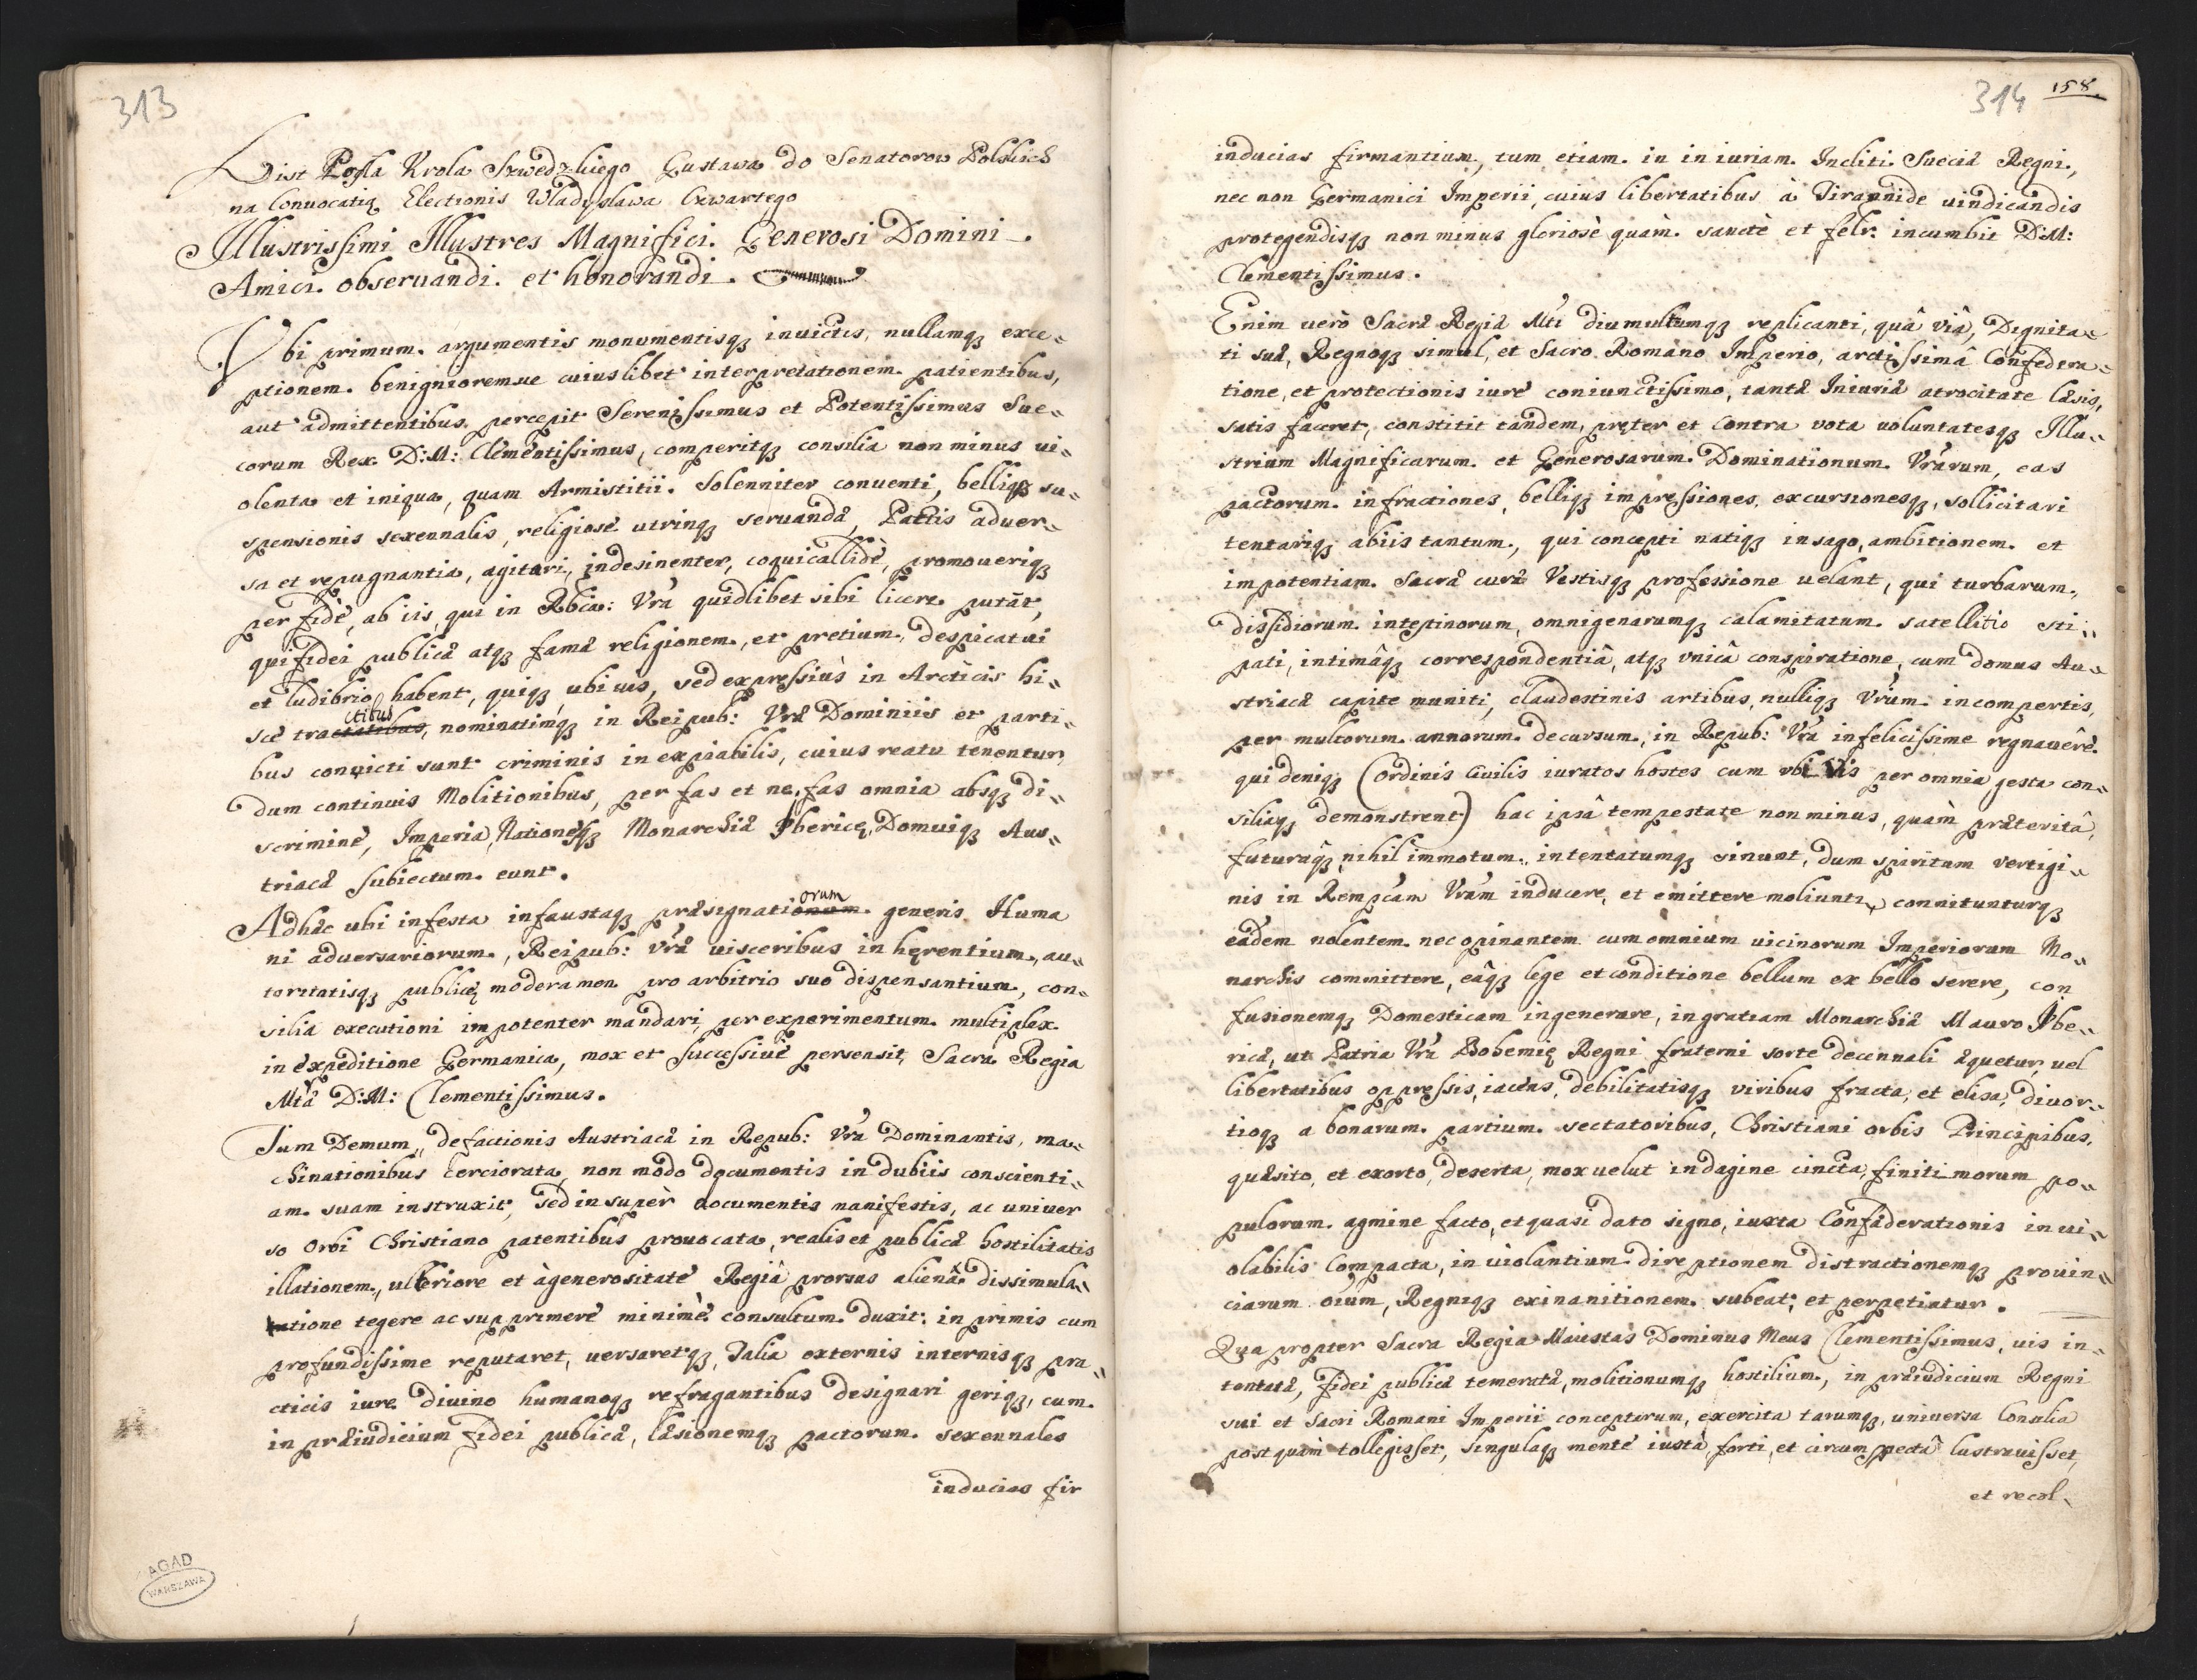 313
List Posła Krola Szwedzkiego Gustawa do Senatorow Polskich
na Convocatią Electionis Władysława Czwartego
Illustrissimi Illustres Magnifici. Generosi Domini.
Amici. obseruandi. et honorandi.
Vbi primum. argumentis monumentisq; inuictis, nullamq; exce„
ptionem. benignioremue cuiuslibet interpretationem. patientibus,
aut admittentibus. percepit Serenissimus et Potentissimus Sue„
corum Rex. D: M: Clementissimus, comperitq; consilia non minus ui„
olenta et iniqua, quam Armistitii. Solenniter conuenti, belliq; su„
spensionis sexennalis, religiosè utrinq; seruandæ, Pactis aduer„
sa et repugnantia, agitari, indesinenter, callidè, promoueriq;
perfidè, ab iis, qui in Rbca: Vrã quidlibet sibi licere putãt,
qui fidei publicæ atq; famæ religionem, et pretium, despicatui
et ludibrio habent, quiq; ubiuis, sed expressiùs in Arcticis hi„
sce tractatibus ctibus, nominatimq; in Reipub: Vræ Dominiis et parti„
bus conuicti sunt criminis inexpiabilis, cuius reatu tenentur,
dum continuis Molitionibus, per fas et nefas omnia absq; di„
scrimine, Imperia, Nationesq; Monarchiæ Ibericę, Domuiq; Aus„
triacæ subiectum. eunt.
Adhæc ubi infesta infaustaq; præsignationum orum generis Huma
ni aduersariorum, Reipub: Vræ uisceribus inhęrentium, au„
toritatisq; publicę moderamen pro arbitrio suo dispensantium, con„
silia executioni impotenter mandari, per experimentum. multiplex
in expeditione Germanica, mox et successiuè persensit, Sacra Regia
Mtã D: M: Clementissimus.
Tum Demum, de factionis Austriacæ in Repub: Vrã Dominantis, ma„
chinationibus Cerciorata, non modo documentis indubiis conscienti„
am. suam instruxit, sed insuper documentis manifestis, ac uniuer
so Orbi Christiano patentibus prouocata, realis et publicæ hostilitatis
illationem, ulteriore et à generositate Regiâ prorsus alienâ dissimula„
tione tegere ac supprimere minimè consultum. duxit: inprimis cum
profundissime reputaret, uersaretq;, Talia externis internisq; pra„
cticis iure diuino humanoq; refragantibus designari geriq;, cum.
in præiudicium fidei publicæ, læsionemq; pactorum. sexennales
inducias fir
AGAD
WARSZAWA
314 158.
inducias firmantium, tum etiam. in iniuriam. Incliti Sueciæ Regni,
nec non Germanici Imperii, cuius libertatibus à Tirannide uindicandis
protegendisq; non minus gloriosè quàm. sanctè et felr: incumbit D: M:
Clementissimus.
Enim uerò Sacræ Regiæ Mti diumultumq; replicanti, quâ viâ, Dignita„
ti suæ, Regnoq; simul, et Sacro Romano Imperio, arctissimâ Confedera„
tione, et protectionis iure coniunctissimo, tantæ Iniuriæ atrocitate læsis,
satis faceret, constitit tandem, pręter et contra vota uoluntatesq; Illu„
strium Magnificarum. et Generosarum. Dominationum. Vrarum, eas
pactorum. infractiones, belliq; impressiones. excursionesq;, sollicitari
tentariq; ab iis tantum, qui concepti natiq; in sago, ambitionem. et
impotentiam. Sacræ curæ Vestisq; professione uelant, qui turbarum,
dissidiorum. intestinorum, omnigenarumq; calamitatum. satellitio sti„
pati, intimâq; correspondentiâ, atq; vnicâ conspiratione, cum domus Au„
striacæ capite muniti, clandestinis artibus, nulliq; Vrum. incompertis,
per multorum. annorum. decursum, in Repub: Vrã infelicissime regnauêre.
qui deniq; (ordinis Ciuilis iuratos hostes cum vbiuis per omnia gesta con„
siliaq; demonstrent) hac ipsâ tempestate non minus, quàm præteritâ,
futurâq; nihil immotum, intentatumq; sinunt, dum spiritum vertigi„
nis in Rempcam Vram inducere, et emittere moliuntur, connitunturq;
eadem nolentem. nec opinantem cum omnium uicinorum Imperiorum Mo„
narchis committere, eâq; lege et conditione bellum ex bello serere, con
fusionemq; Domesticam ingenerare, in gratiam Monarchiæ Mauro Ibe„
ricæ, ut Patria Vrã Bohemię Regni fraterni sorte decennali æquetur, uel
libertatibus oppressis, iacens, debilitatisq; viribus fracta, et elisa, diuor„
tioq; a bonarum. partium. sectatoribus, Christiani orbis Principibus,
quæsito, et exorto, deserta, mox uelut indagine cincta, finitimorum po„
pulorum. agmine facto, et quasi dato signo, iuxta Confæderationis inui„
olabilis Compacta, in uiolantium direptionem distractionemq; prouin„
ciarum oium, Regniq; exinanitionem. subeat, et perpetiatur.
Quapropter Sacra Regia Maiestas Dominus Meus Clementissimus, uis in„
tentatæ, fidei publicæ temeratæ, molitionumq; hostilium, in præiudicium Regni
sui et Sacri Romani Imperii conceptarum, exercitatarumq;, uniuersa Consilia
postquàm collegisset, singulaq; mente iustâ, forti, et circumspectâ lustrauisset,
et recol„